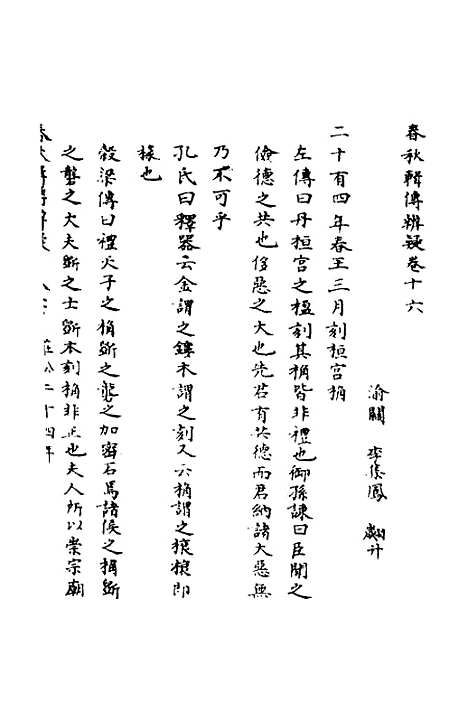 春秋輯傳辨疑卷十六
渝關 李集鳳 翽升
二十有四年春王三月刻桓宮桷
左傳曰丹桓宮之楹刻其桷皆非禮也御孫諫曰臣聞之
儉德之共也侈惡之大也先君有共德而君納諸大惡無
乃不可乎
孔氏曰釋器云金謂之鏤木謂之刻又云桷謂之榱榱即
椽也
穀梁傳曰禮天子之桷斵之礱之加密石焉諸侯之桷斵
之礱之大夫斵之士斵木刻桷非正也夫人所以崇宗廟
莊公二十四年